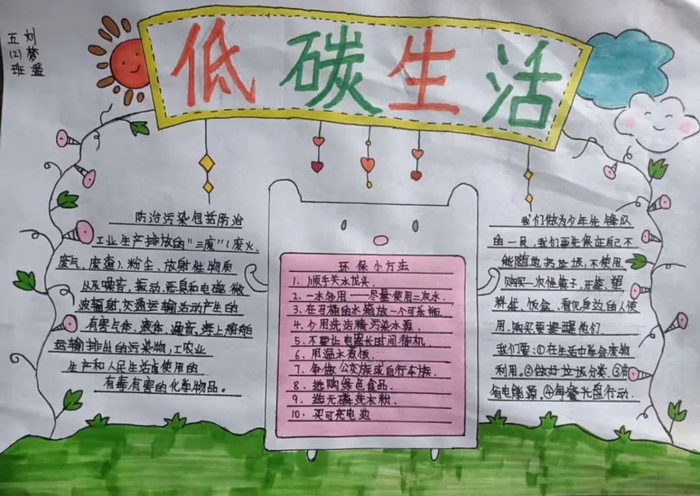 五(2)班
刘梦遥
低碳生活
防治污染包括防治
工业生产排放的"三废"(废水,
废气,废渣),粉尘,放射性物质
以及噪音,振动,恶臭和电磁微
波辐射,交通运输活动产生的
有害气体,液体,噪音,海上船舶
运输排出的污染物,工农业
生产和人民生活者使用的
有毒有害的化学物品。
环保小方法
1、顺手关水龙头。
2、一水多用——尽量使用二次水。
3、在马桶的水箱放一个可乐瓶
4、少用洗洁精污染水源
5、不要让电器长时间待机
6、用温水煮饭。
7、争做公交族或自行车族。
8、选购绿色食品。
9、选无磷洗衣粉.
10、买可充电池
我们做为少年先锋队
的一员,我们要先保证自己不
能随意扔垃圾,不使用,
购买一次性筷子,纸杯,塑
料袋,饭盒,看见身边的人使
用,购买要提醒他们
我们要:①在生活中学会废物
利用。②做好垃圾分类.③节
省电能源,④每餐光盘行动.